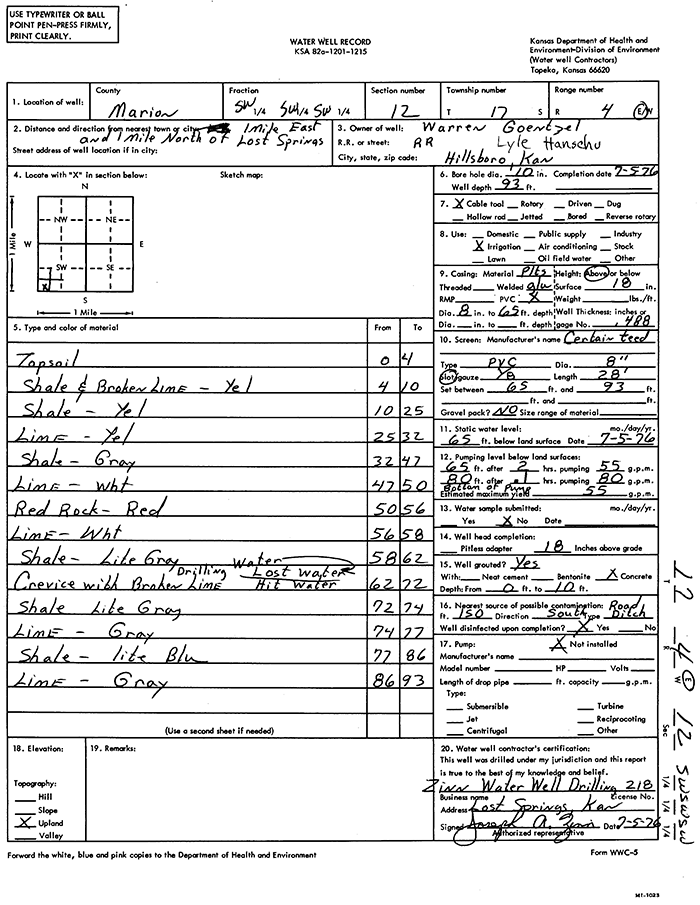 USE TYPEWRITER OR BALL
POINT PEN-PRESS FIRMLY,
PRINT CLEARLY.
WATER WELL RECORD
KSA 82a-1201-1215
Kansas Department of Health and
Environment-Division of Environment
(Water well Contractors)
Topeka, Kansas 66620
1. Location of well: County Marion Fraction SW 1/4 SW 1/4 SW 1/4 Section number 12 Township number T 17 S Range number R 4 E/W
2. Distance and direction from nearest town or city: 1 mile East
and 1 mile North of Lost Springs
Street address of well location if in city:
3. Owner of well: Warren Goentzel
R.R. or street: RR Lyle Hanschu
City, state, zip code: Hillsboro, Kan
4. Locate with "X" in section below: Sketch map:
N
NW NE
W E
SW SE
X
S
1 Mile
1 Mile
5. Type and color of material From To
Topsoil 0 4
Shale & Broken Lime - Yel 4 10
Shale - Yel 10 25
Lime - Yel 25 32
Shale - Gray 32 47
Lime - Wht 47 50
Red Rock - Red 50 56
Lime - Wht 56 58
Shale - Lite Gray 58 62
Drilling Water Lost Water
Crevice with Broken Lime Hit Water 62 72
Shale Lite Gray 72 74
Lime - Gray 74 77
Shale - lite Blu 77 86
Lime - Gray 86 93
(Use a second sheet if needed)
6. Bore hole dia. 10 in. Completion date 7-5-76
Well depth 93 ft.
7. X Cable tool Rotory Driven Dug
Hollow rod Jetted Bored Reverse rotary
8. Use: Domestic Public supply Industry
X Irrigation Air conditioning Stock
Lawn Oil field water Other
9. Casing: Material Plts Height: Above or below
Threaded Welded glu Surface 18 in.
RMP PVC X Weight lbs./ft.
Dia. 8 in. to 65 ft. depth Wall Thickness: inches or
Dia. in. to ft. depth gage No. .488
10. Screen: Manufacturer's name Certain teed
Type PVC Dia. 8"
Slot/gauze Length 28'
Set between 65 ft. and 93 ft.
ft. and ft.
Gravel pack? NO Size range of material
11. Static water level: mo./day/yr.
65 ft. below land surface Date 7-5-76
12. Pumping level below land surfaces:
65 ft. after 2 hrs. pumping 55 g.p.m.
80 ft. after .1 hrs. pumping 80 g.p.m.
Bottom of Pump
Estimated maximum yield 55 g.p.m.
13. Water sample submitted: mo./day/yr.
Yes X No Date
14. Well head completion:
Pitless adapter 18 Inches above grade
15. Well grouted? Yes
With: Neat cement Bentonite X Concrete
Depth: From 0 ft. to 10 ft.
16. Nearest source of possible contamination: Road
ft. 150 Direction South Type Ditch
Well disinfected upon completion? X Yes No
17. Pump: X Not installed
Manufacturer's name
Model number HP Volts
Length of drop pipe ft. capacity g.p.m.
Type:
Submersible Turbine
Jet Reciprocating
Centrifugal Other
18. Elevation:
Topography:
Hill
Slope
X Upland
Valley
19. Remarks:
20. Water well contractor's certification:
This well was drilled under my jurisdiction and this report
is true to the best of my knowledge and belief.
Zinn Water Well Drilling 218
Business name License No.
Address Lost Springs, Kan
Signed Joseph A. Zinn Date 7-5-76
Authorized representative
T R E W Sec 12 SW SW SW 1/4 1/4 1/4
Forward the white, blue and pink copies to the Department of Health and Environment
Form WWC-5